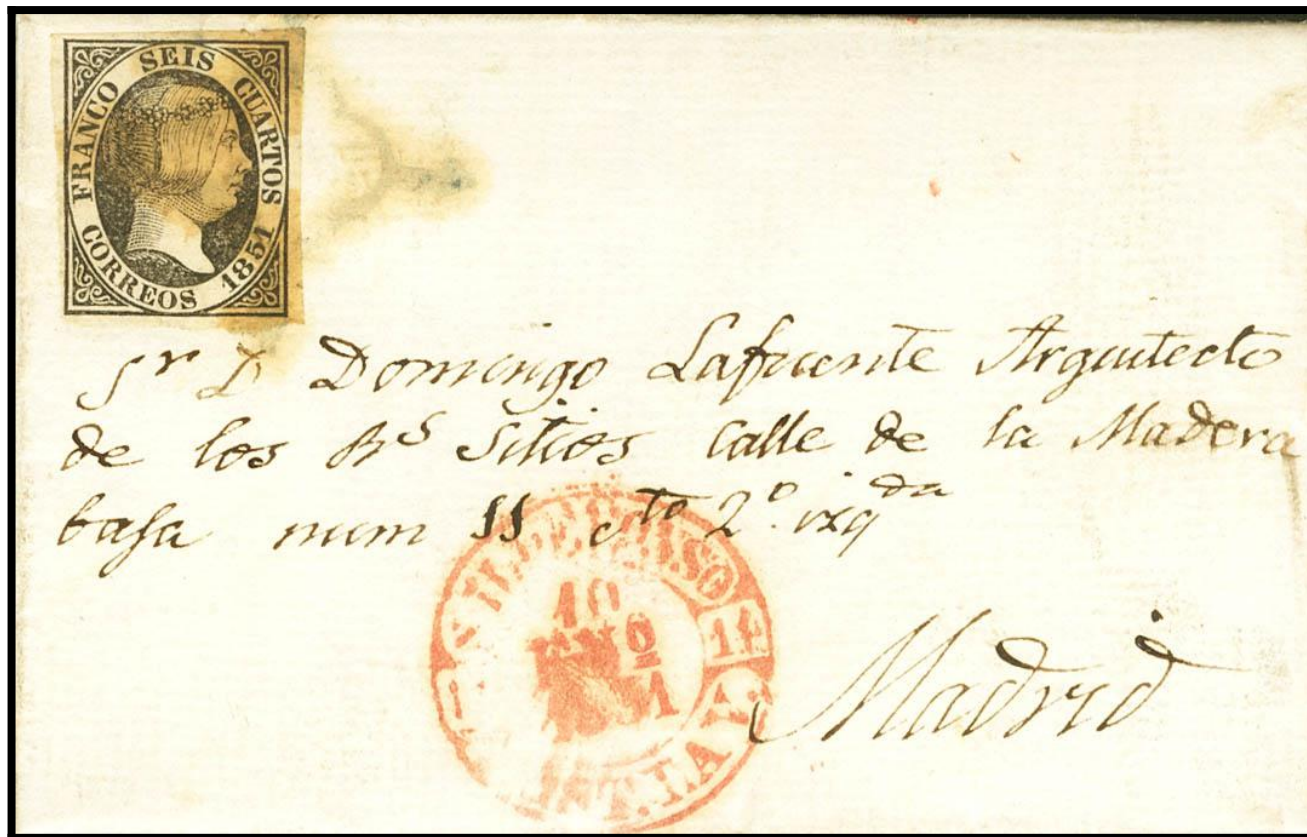 FRANCO SEIS CUARTOS
CORREOS 1851
Sr D Domingo Lafuente Arquitecto
de los Rs Sitios Calle de la Madera
baja num 11 cto 2º izqda
Madrid
S. ILDEFONSO
10